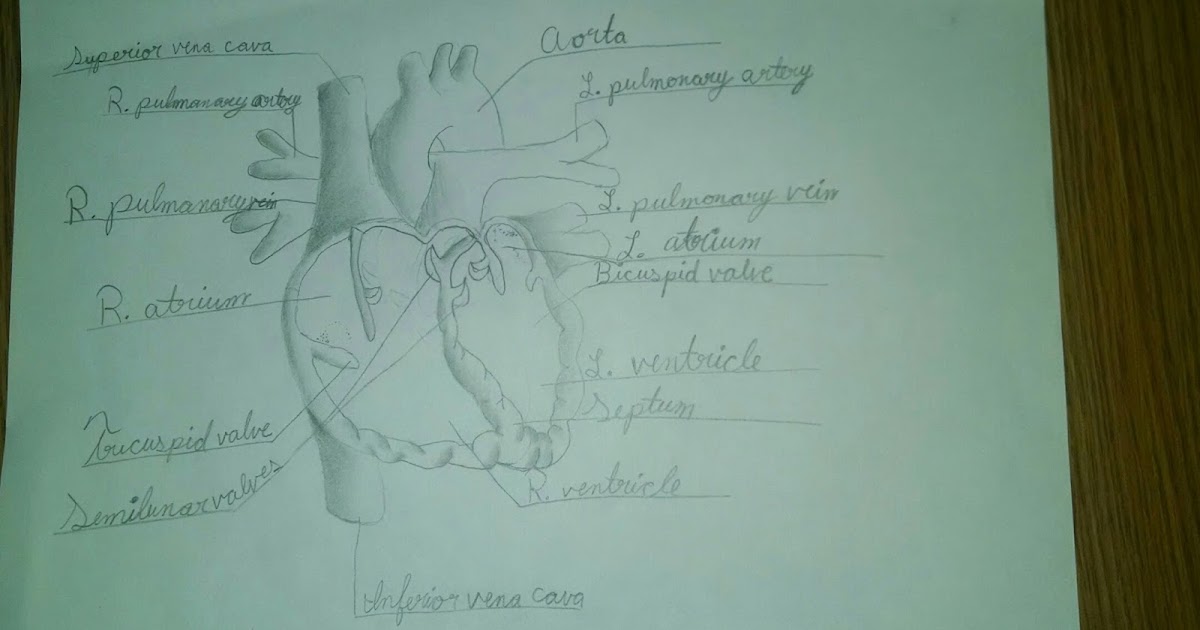 Superior vena cava
Aorta
R. pulmanary artery
L. pulmonary artery
R. pulmanary vein
L. pulmonary vein
L. atrium
Bicuspid valve
R. atrium
L. ventricle
Septum
Tricuspid valve
Semilunar valves
R. ventricle
Inferior vena cava